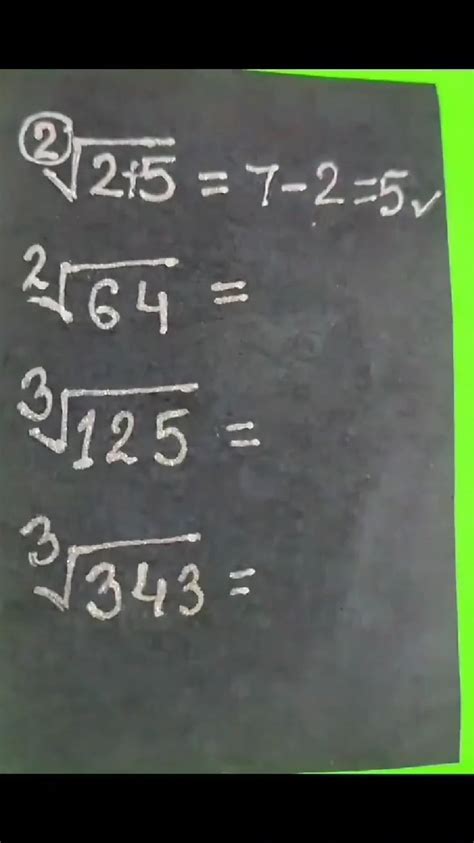 ²√2+5 = 7-2=5✓
²√64 =
³√125 =
³√343 =